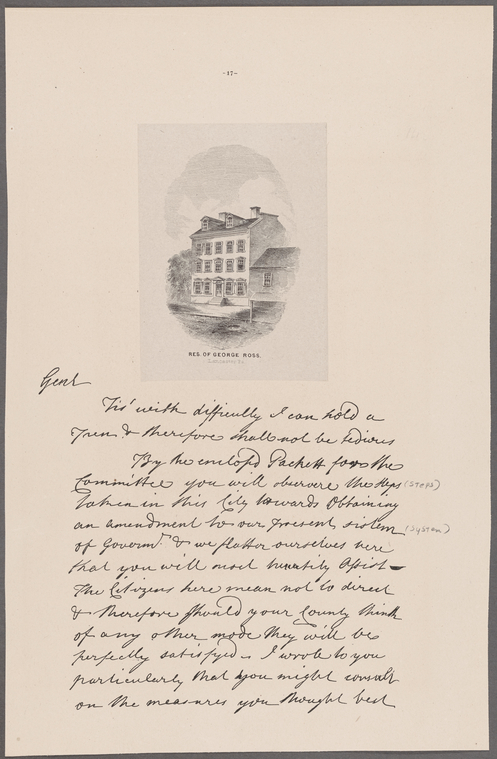 -17-
RES. OF GEORGE ROSS.
Lancaster Pa.
Gent
Tis' with difficulty I can hold a
pen & therefore shall not be tedious
By the enclosd Packett from the
Committee you will observe the steps (steps)
taken in this City towards Obtaining
an amendment to our present sistem (system)
of Governmt. & we flatter ourselves here
that you will most heartily Assist—
The Citizens here mean not to direct
& therefore should your County think
of any other mode they will be
perfectly satisfyed. I wrote to you
particularly that you might consult
on the measures you thought best